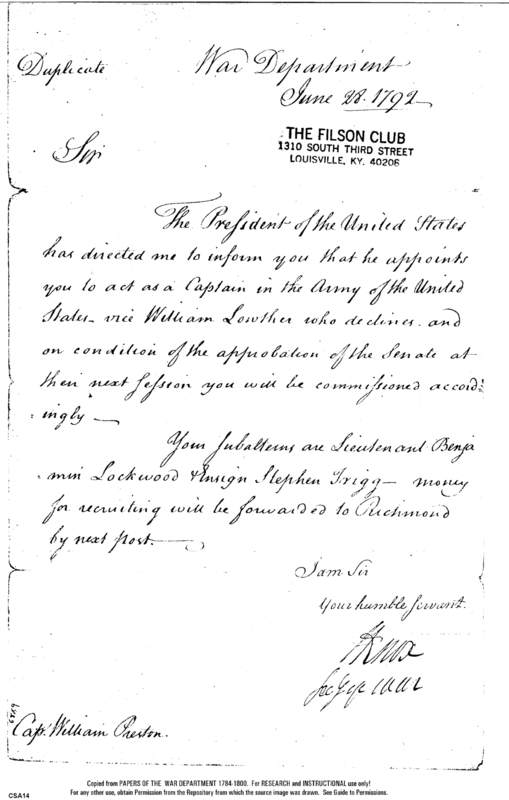 Duplicate
War Department
June 28. 1792
THE FILSON CLUB
1310 SOUTH THIRD STREET
LOUISVILLE, KY. 40206
Sir
The President of the United States
has directed me to inform you that he appoints
you to act as a Captain in the Army of the United
States - vice William Lowther who declines - and
on condition of the approbation of the Senate at
their next session you will be commissioned accord:
:ingly —
Your subalterns are Lieutenant Benja
min Lockwood & Ensign Stephen Trigg — money
for recruiting will be forwarded to Richmond
by next post. —
I am Sir
Your humble servant.
HKnox
Secy of War
Capt. William Preston.
Copied from PAPERS OF THE WAR DEPARTMENT 1784-1800. For RESEARCH and INSTRUCTIONAL use only!
For any other use, obtain Permission from the Repository from which the source image was drawn. See Guide to Permissions.
CSA14